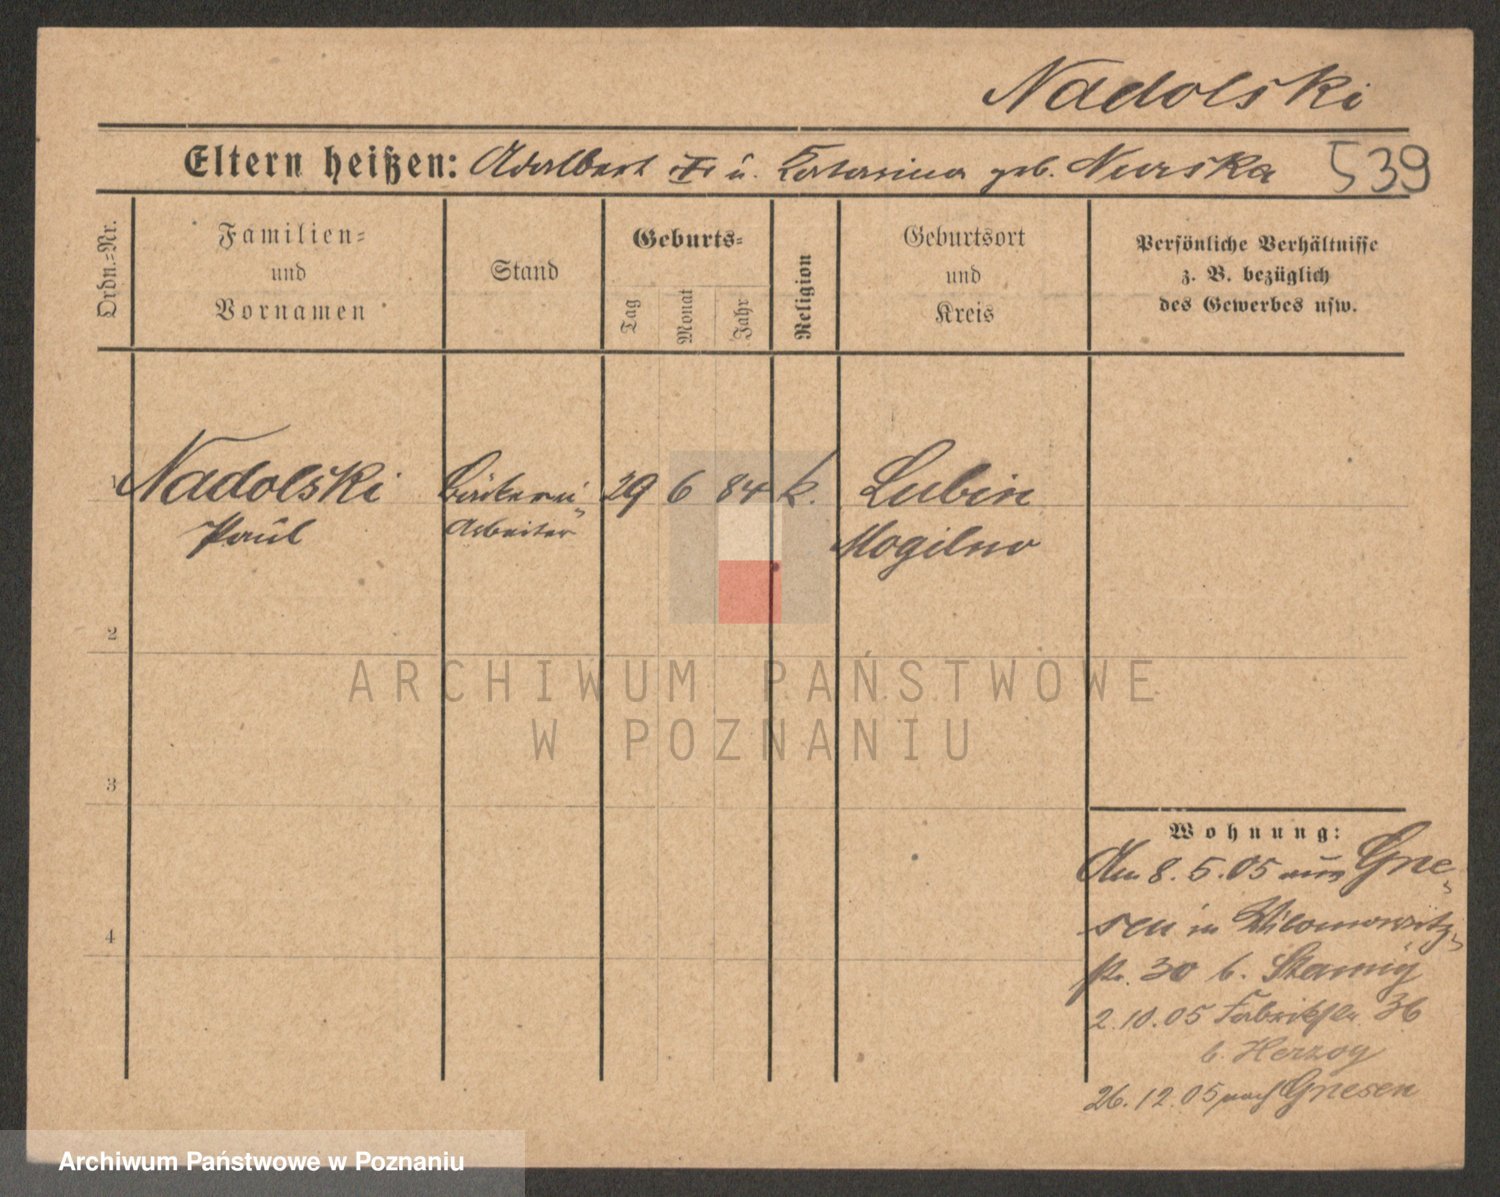 Nadolski
Eltern heißen: Adalbert u. Katarina geb. Nurska 539
Ordn.-Nr.
Familien-
und
Vornamen
Stand
Geburts-
Tag
Monat
Jahr
Religion
Geburtsort
und
Kreis
Persönliche Verhältnisse
z. B. bezüglich
des Gewerbes usw.
1 Nadolski Bäckerei- 29 6 84 k. Lubin
Paul Arbeiter Mogilno
2
3
4
Wohnung:
Am 8.5.05 aus Gne-
sen in
str. 30 b.
2.10.05 Fabrikstr. 36
b. Herzog
26.12.05 nach Gnesen
ARCHIWUM PAŃSTWOWE
W POZNANIU
Archiwum Państwowe w Poznaniu